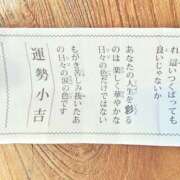 れ這いつくばっても
良いじゃないか
あなたの人生を彩る
のは楽しく華やかな
日々の色だけではない
もがき苦しみ抜いたあ
の日々の涙の色です
運勢小吉